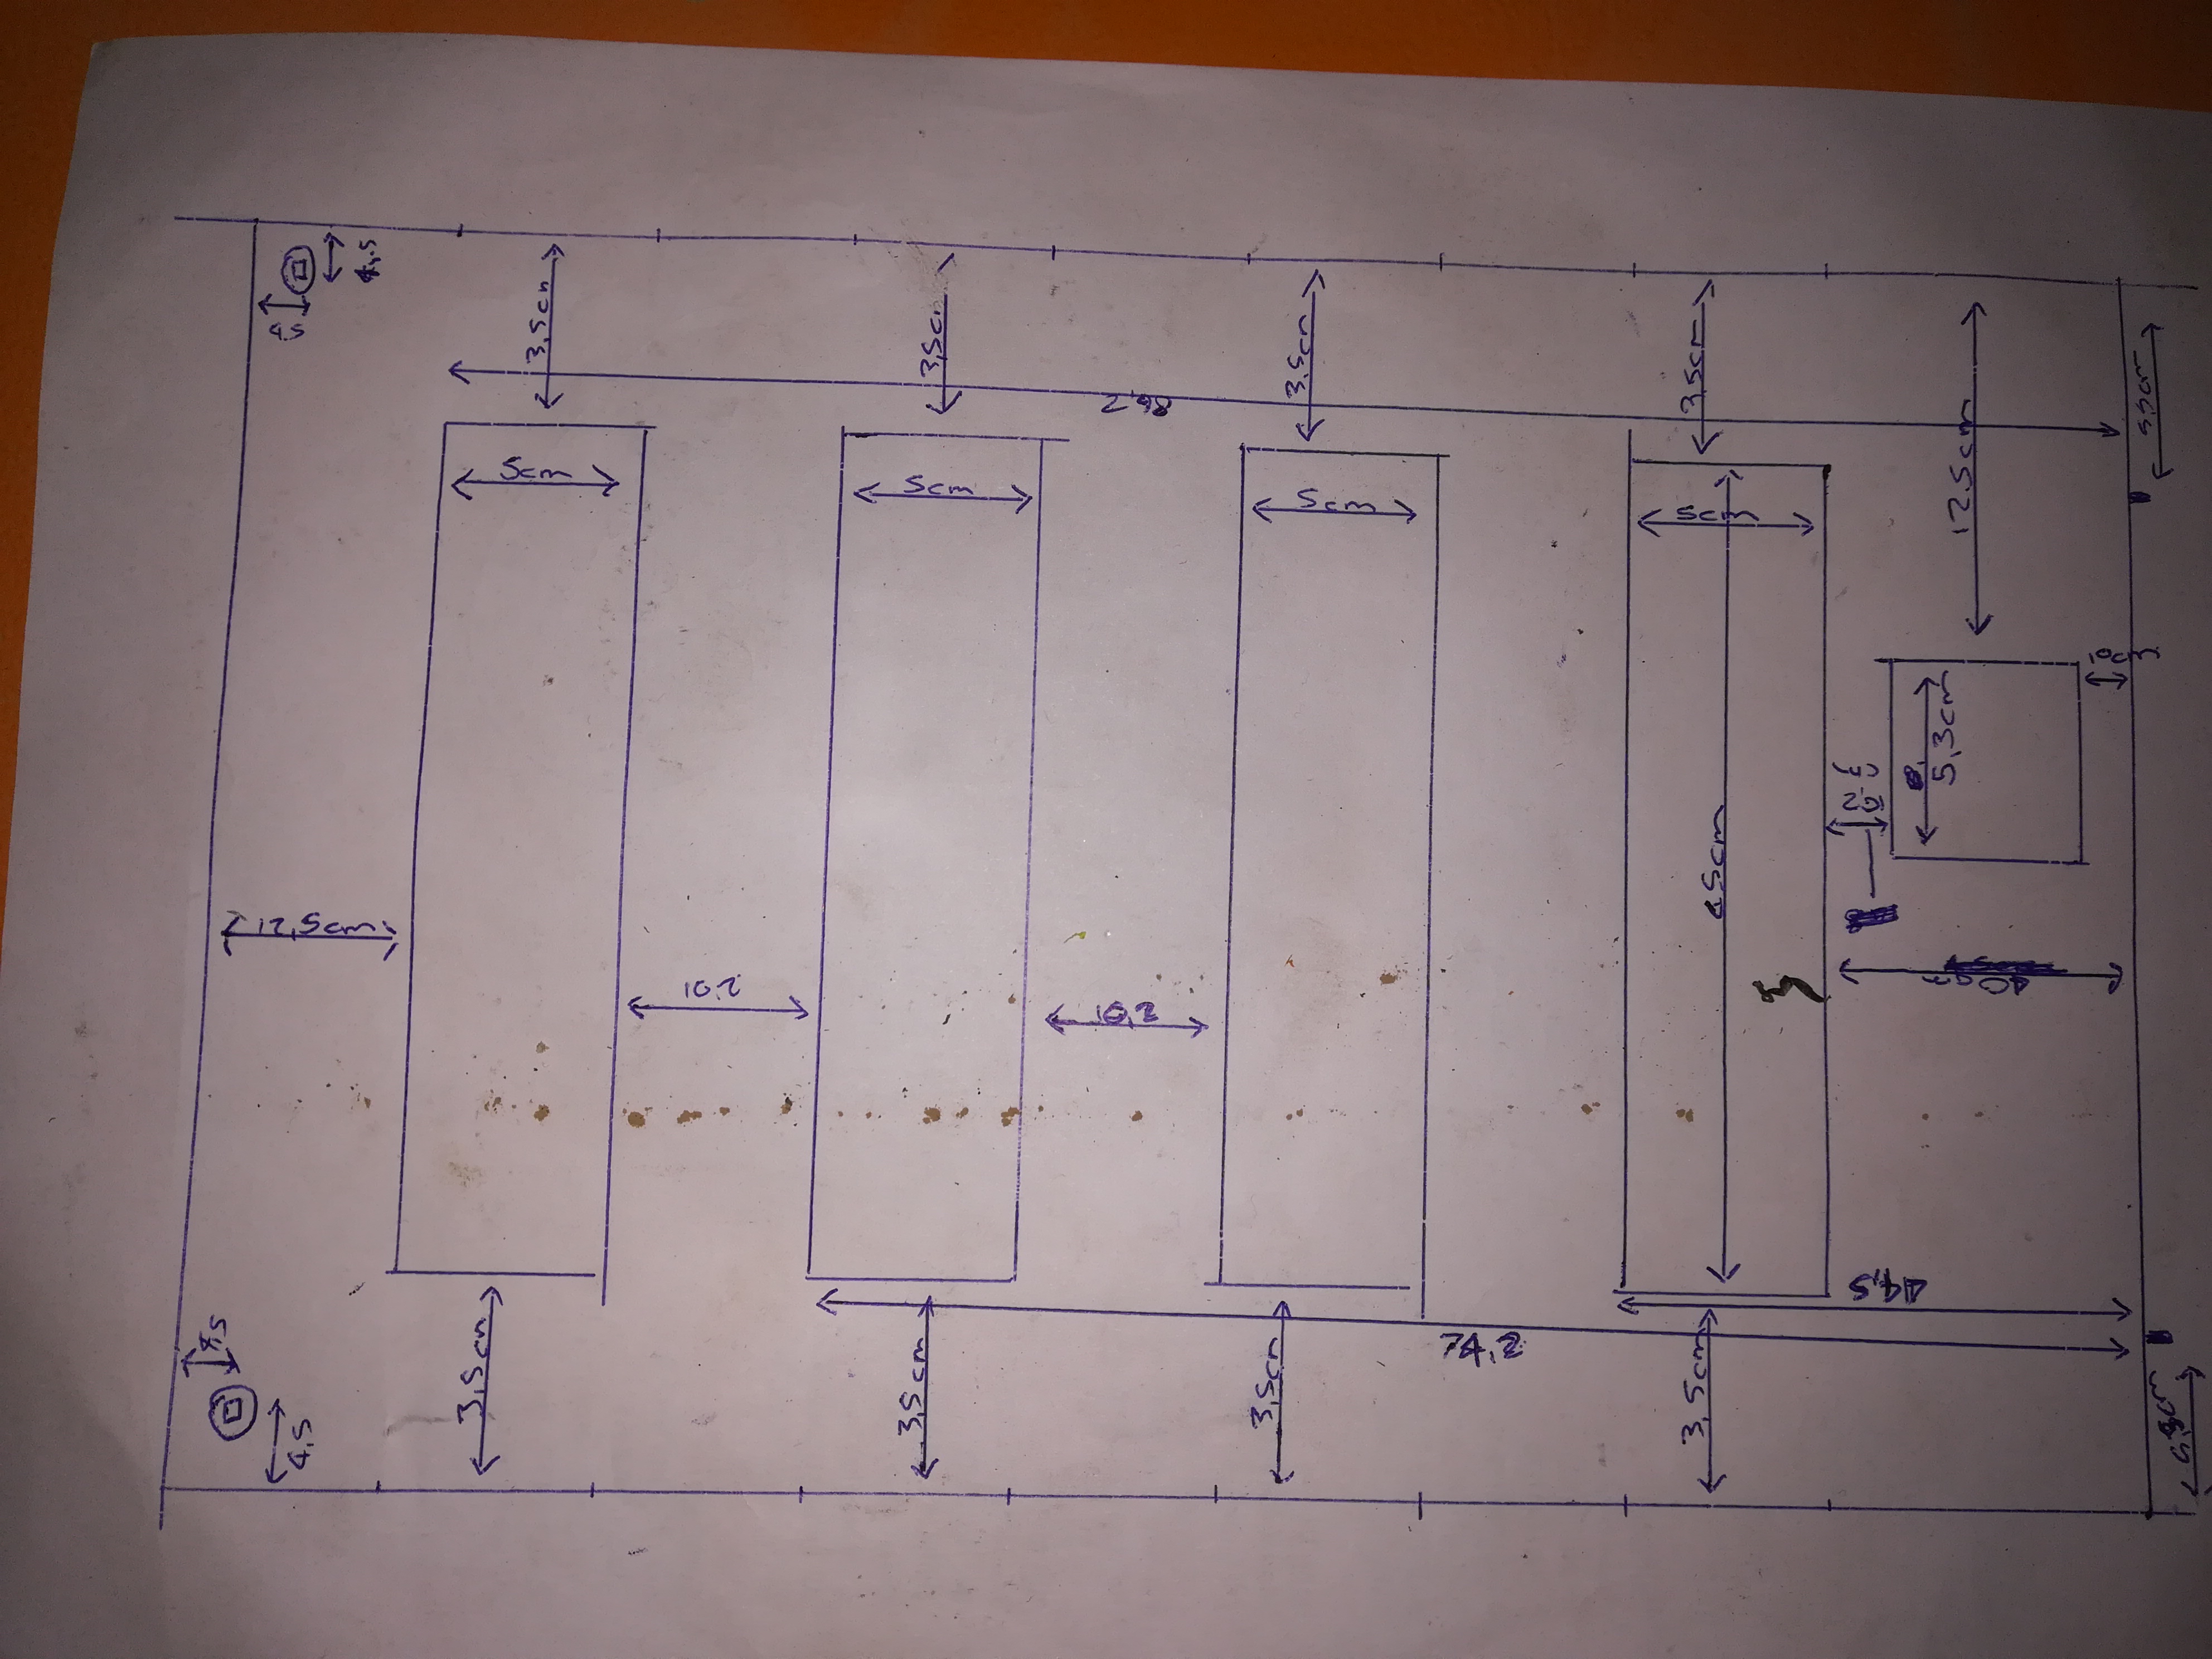 4,5
4,5
3,5cm
3,5cm
3,5cm
3,5cm
5,5cm
12,5cm
5cm
5cm
5cm
5cm
5,3cm
45cm
12,5cm
10,2
10,2
44,5
74,2
4,5
3,5cm
3,5cm
3,5cm
3,5cm